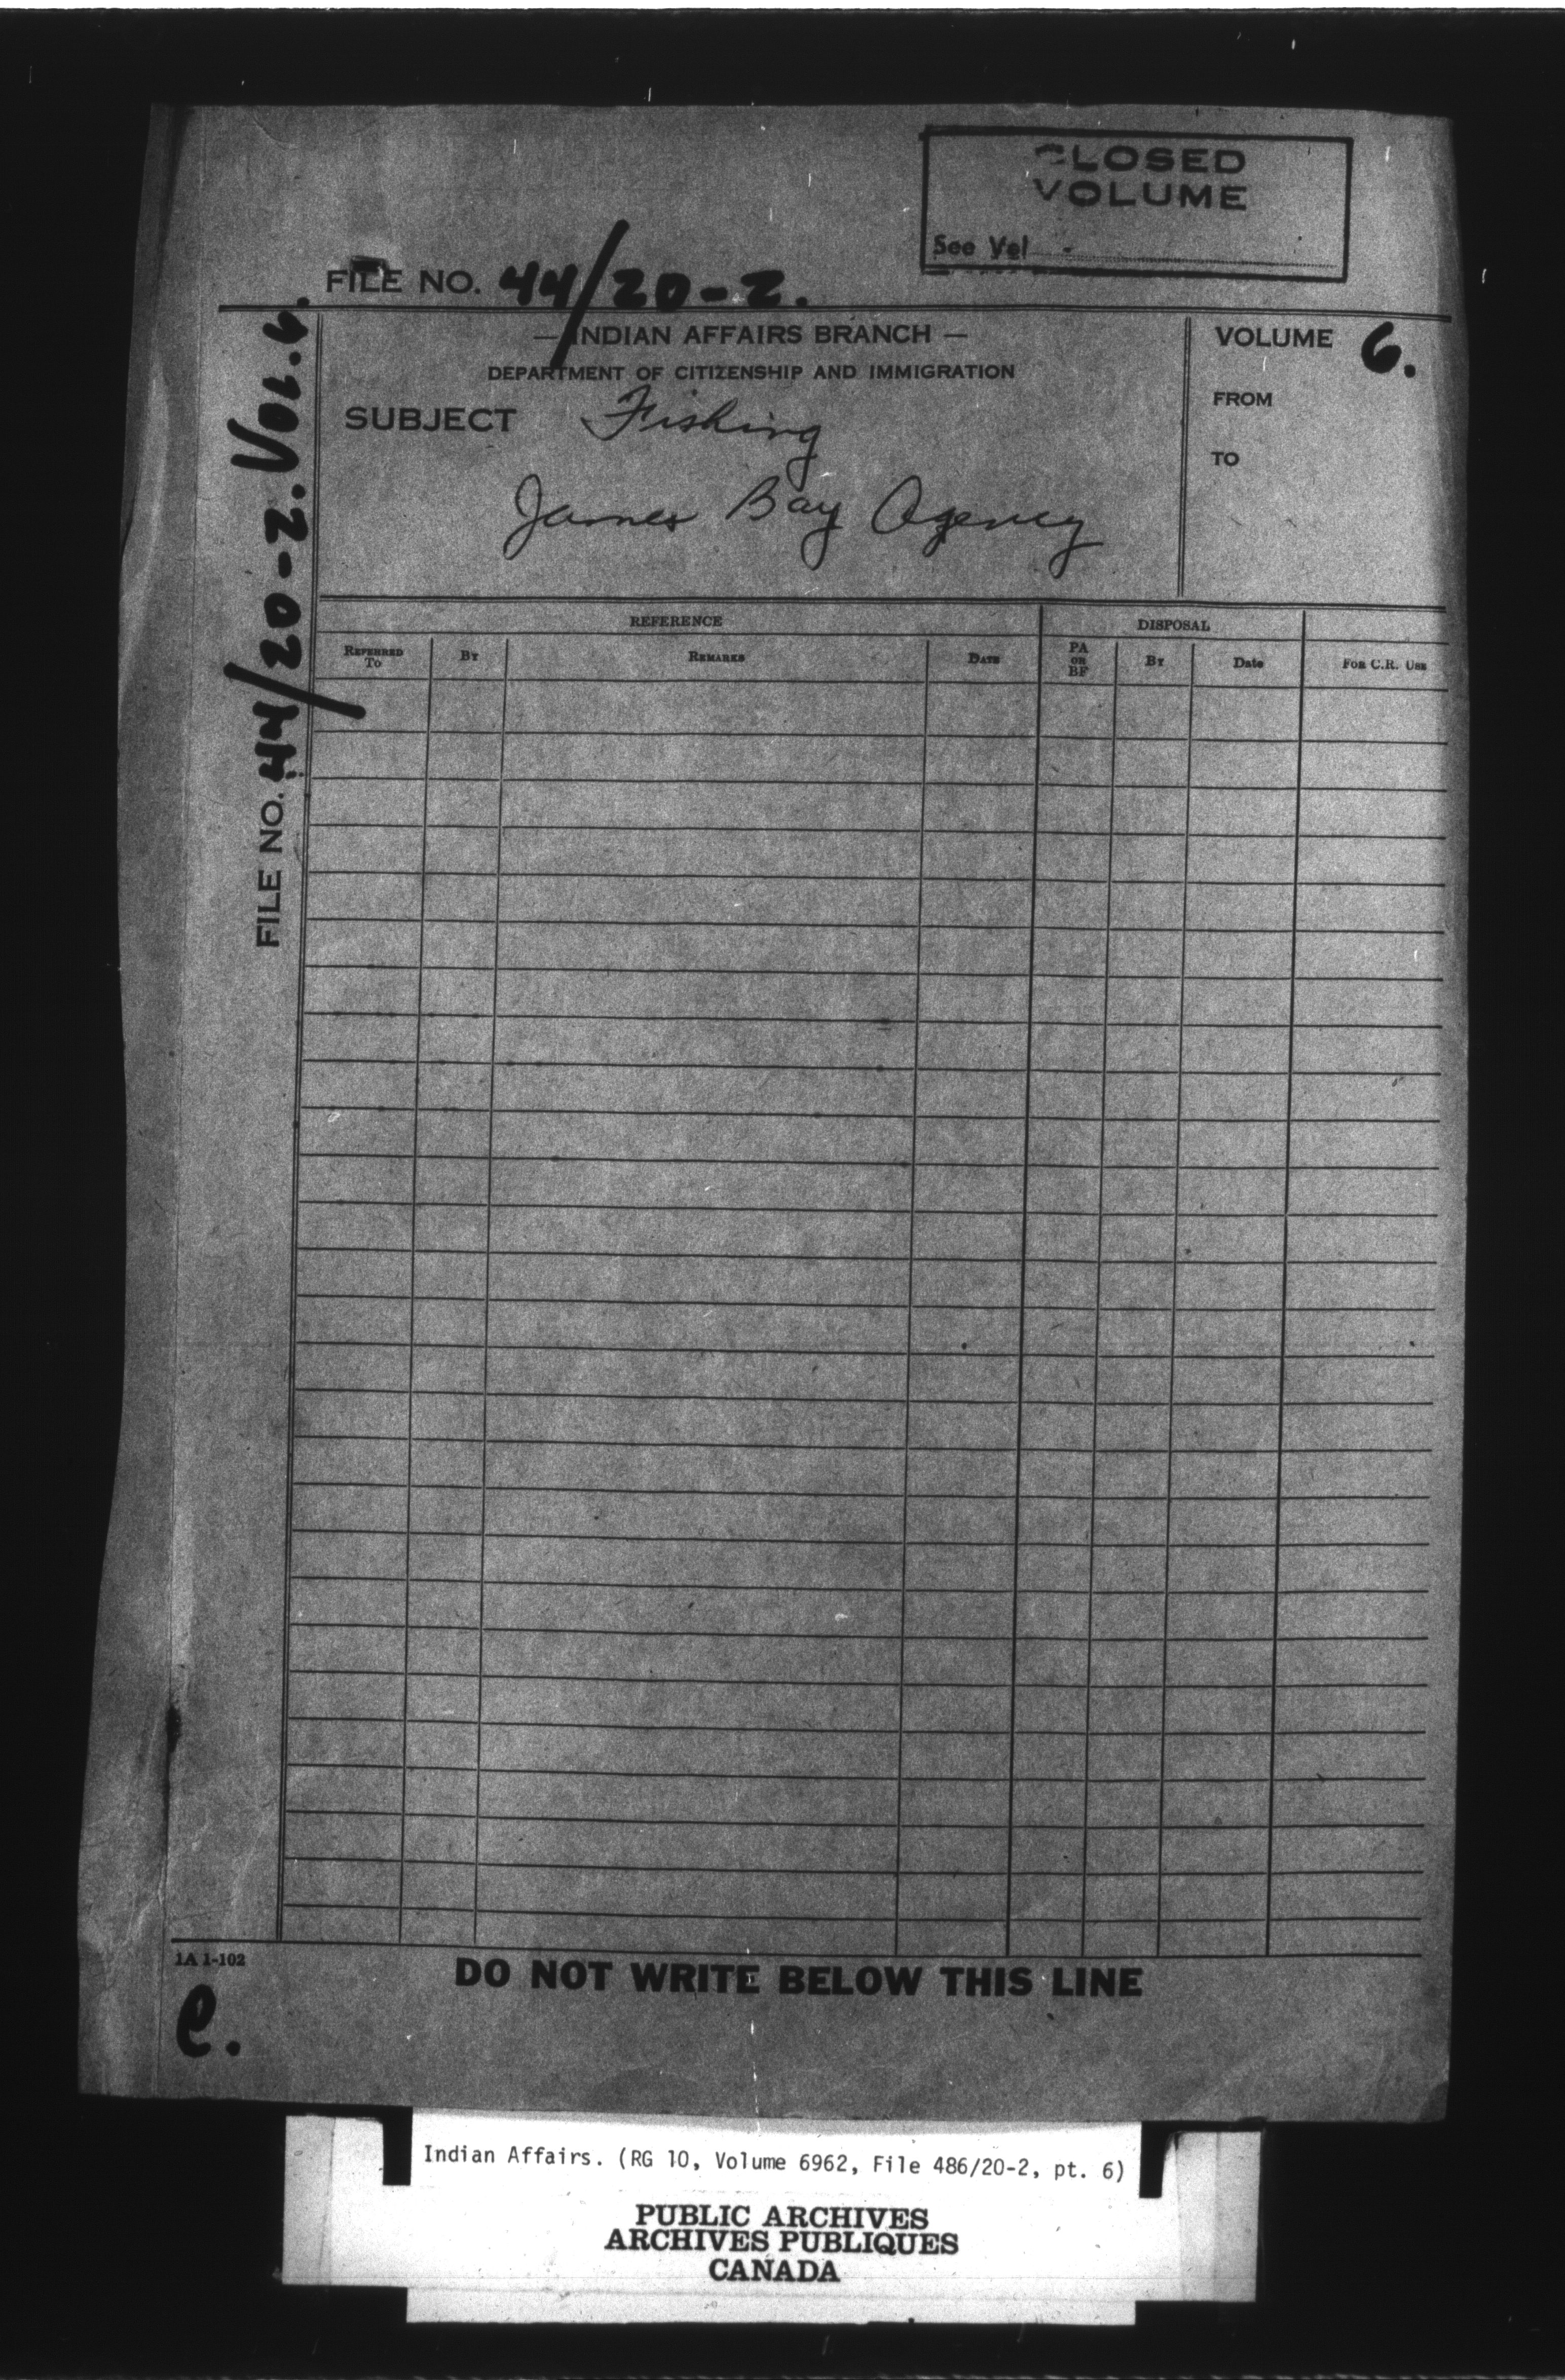 CLOSED
VOLUME
See Vol
FILE NO. 44/20-2.
— INDIAN AFFAIRS BRANCH —
DEPARTMENT OF CITIZENSHIP AND IMMIGRATION
SUBJECT Fishing
James Bay Agency
VOLUME 6.
FROM
TO
FILE NO. 44/20-2. VOL. 6.
REFERENCE DISPOSAL
REFERRED TO BY REMARKS DATE PA OR BF BY Date FOR C.R. USE
1A 1-102
DO NOT WRITE BELOW THIS LINE
e.
Indian Affairs. (RG 10, Volume 6962, File 486/20-2, pt. 6)
PUBLIC ARCHIVES
ARCHIVES PUBLIQUES
CANADA